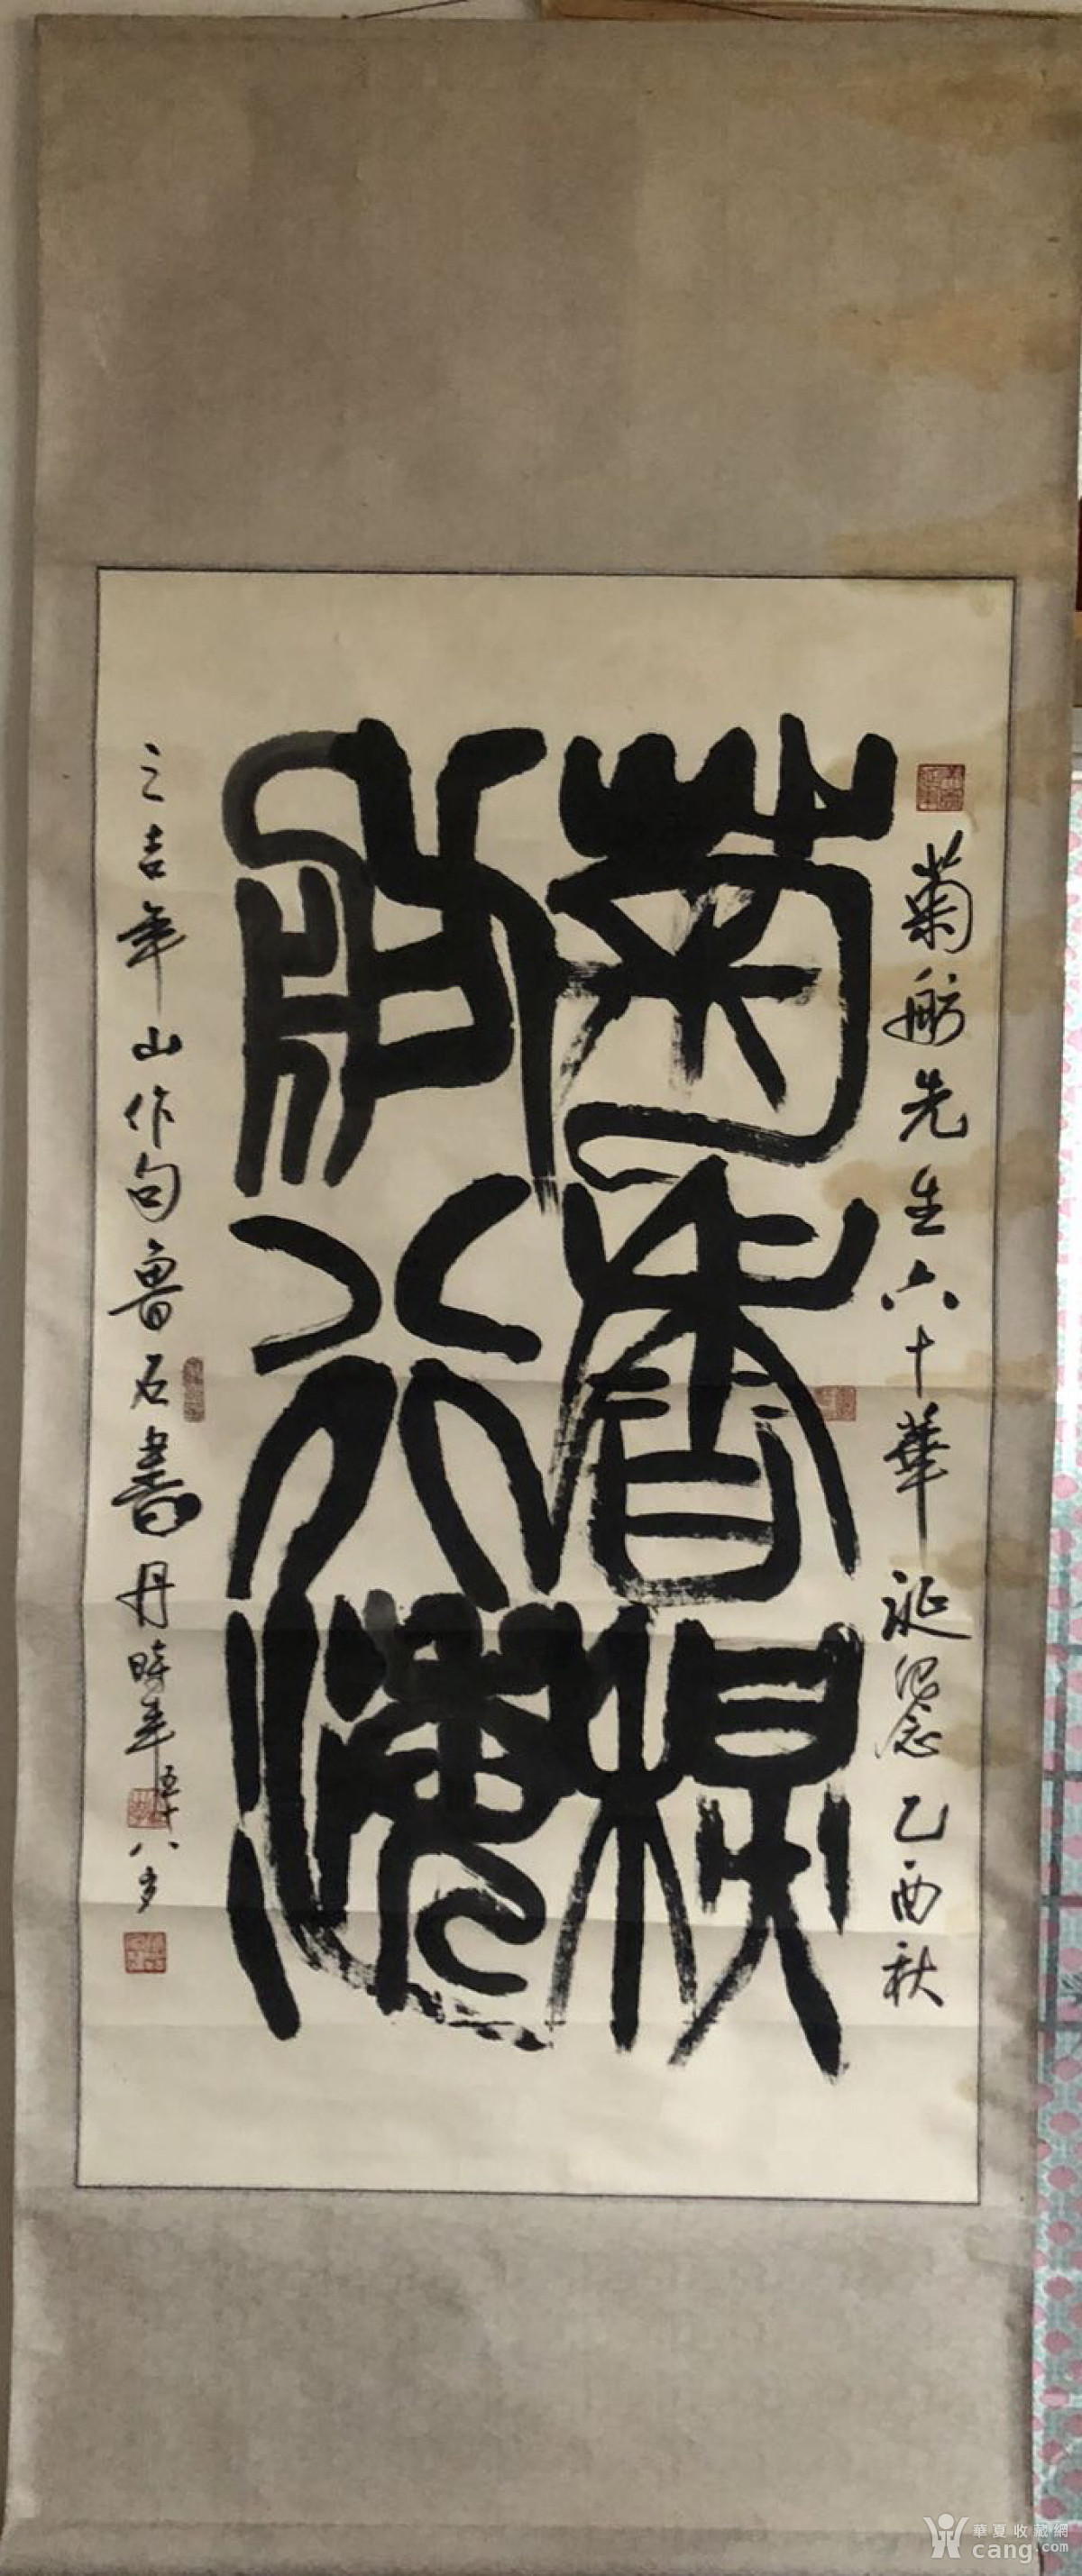 菊舫先生六十華誕紀念乙酉秋
菊香
舫行
之吉年山作句魯石書丹時年五十八岁
華夏收藏網
cang.com